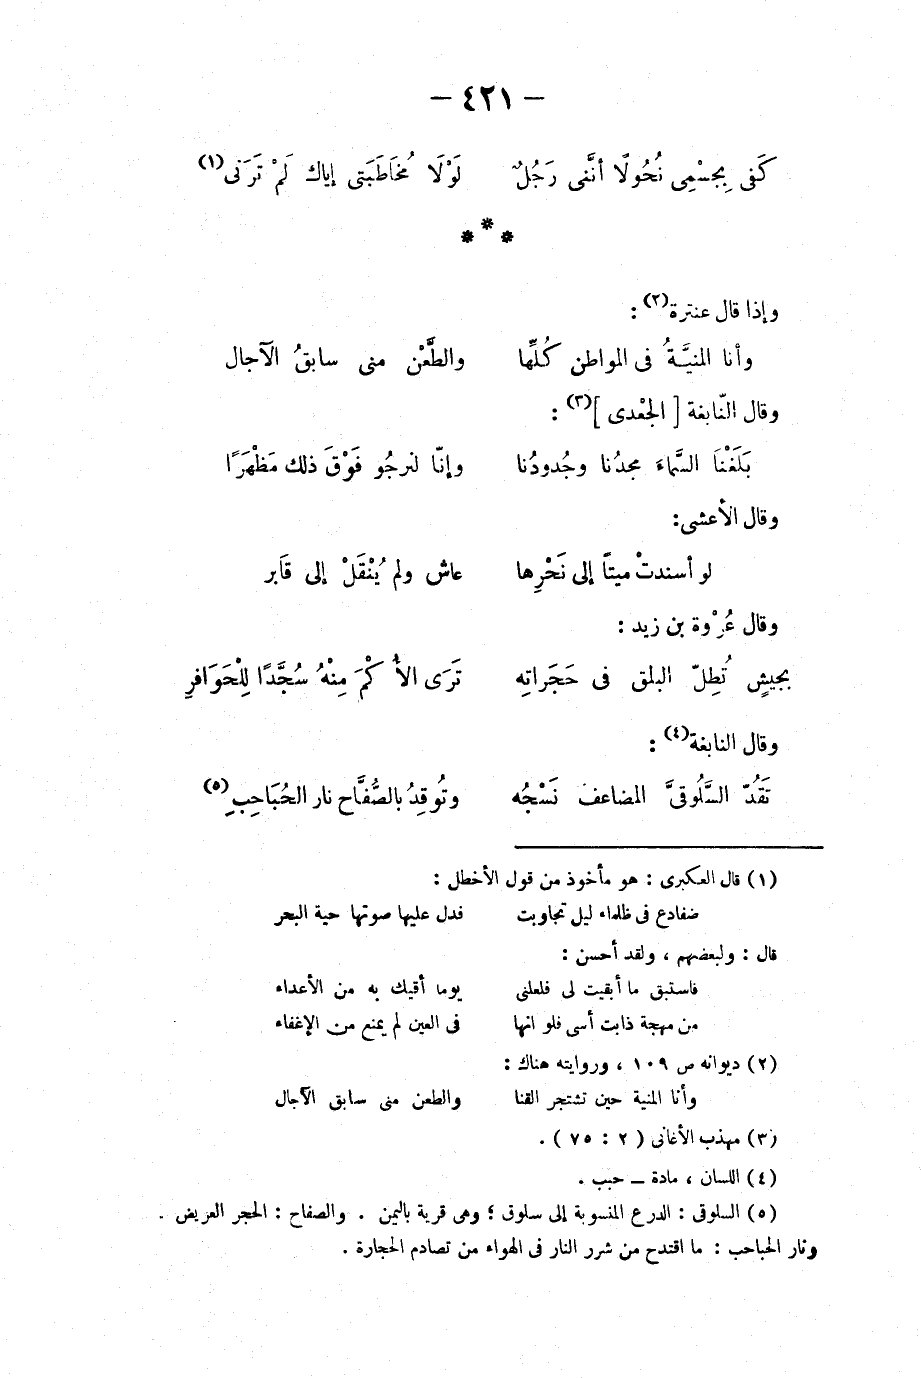 — ٤٢١ —
كَفَى بِجِسْمِى نُحُولًا أنَّنى رَجُلٌ لَوْلَا مُخَاطَبَتِى إياك لَمْ تَرَنى(١)
* * *
وإذا قال عنترة(٢) :
وأنا المنيَّةُ فى المواطن كُلِّها والطَّعْن منى سابقُ الآجال
وقال النّابغة [ الجَعْدى ](٣) :
بَلَغْنَا السَّماءَ مجدُنا وجُدودُنا وإنّا لنرجُو فَوْقَ ذلك مَظْهَرًا
وقال الأعشى:
لو أسندتْ ميتًا إلى نَحْرِها عاش ولم يُنْقَلْ إلى قَابر
وقال عُرْوة بن زيد :
بجيشٍ تُطِلّ البلق فى حَجَراتِه تَرَى الأُكْمَ مِنْهُ سُجَّدًا لِلْحَوَافرِ
وقال النابغة(٤) :
تَقُدّ السَّلُوقىَّ المضاعف نَسْجُه وتُوقِدُ بالصُّفَّاح نار الحُبَاحِبِ(٥)
(١) قال العكبرى : هو مأخوذ من قول الأخطل :
ضفادع فى ظلماء ليل تجاوبت فدل عليها صوتها حية البحر
قال : ولبعضهم ، ولقد أحسن :
فاستبق ما أبقيت لى فلعلنى يوما أقيك به من الأعداء
من مهجة ذابت أسى فلو انها فى العين لم يمنع من الإغفاء
(٢) ديوانه ص ١٠٩ ، وروايته هناك :
وأنا المنية حين تشتجر القنا والطعن منى سابق الآجال
(٣) مهذب الأغانى ( ٢ : ٧٥ ) .
(٤) اللسان ، مادة — حبب .
(٥) السلوقى : الدرع المنسوبة إلى سلوق ؛ وهى قرية باليمن . والصفاح : الحجر العريض .
ونار الحباحب : ما اقتدح من شرر النار فى الهواء من تصادم الحجارة .